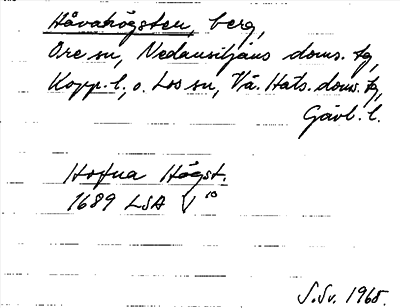 Håvahögsten, berg,
Ore sn, Nedansiljans doms. tg,
Kopp. l., o. Los sn, Vä. Häls. doms. tg,
Gävl. l.
Hofua Högst.
1689 LSA V¹⁰
S.Sv. 1968.